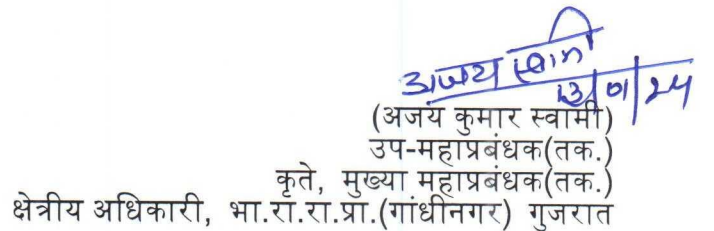 अजय स्वामी
13/01/24
(अजय कुमार स्वामी)
उप-महाप्रबंधक(तक.)
कृते, मुख्या महाप्रबंधक(तक.)
क्षेत्रीय अधिकारी, भा.रा.रा.प्रा.(गांधीनगर) गुजरात